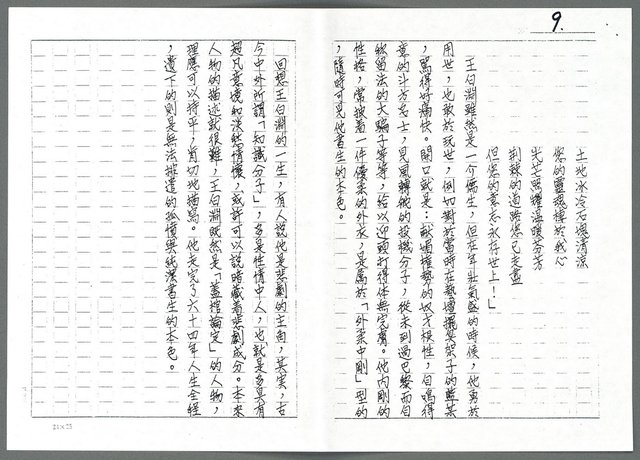 9.
土地冰冷石塊清涼
您的靈魂樓於我心
光芒照耀溫暖芬芳
荊棘的道路您已走盡
但您的意志永存世上！」
王白淵雖然是一介儒生，但在年壯氣盛的時候，他勇於
用世，也敢於玩世，例如對於當時在藝壇擺臭架子的藍某
，罵得好痛快。開口就是：獻媚權勢的奴才根性，自鳴得
意的斗方名士，見風轉舵的投機分子，從未到過巴黎而自
稱留法的大騙子等等，給以迎頭打得体無完膚。他內剛的
性格，常披着一件優柔的外衣，是屬於「外柔中剛」型的
，隨時可見他書生的本色。
回想王白淵的一生，有人說他是悲劇的主角，其實，古
今中外所謂「知識分子」，多是性情中人，也就是多具有
超凡意境和淡然情懷，或許可以說暗藏着悲劇成分。本來
人物的描述就很難，王白淵既然是「蓋棺論定」的人物，
理應可以持平，剴切地描寫。他走完了六十四年人生全程
，遺下的則是無法排遣的孤憤與純潔書生的本色。
24×25